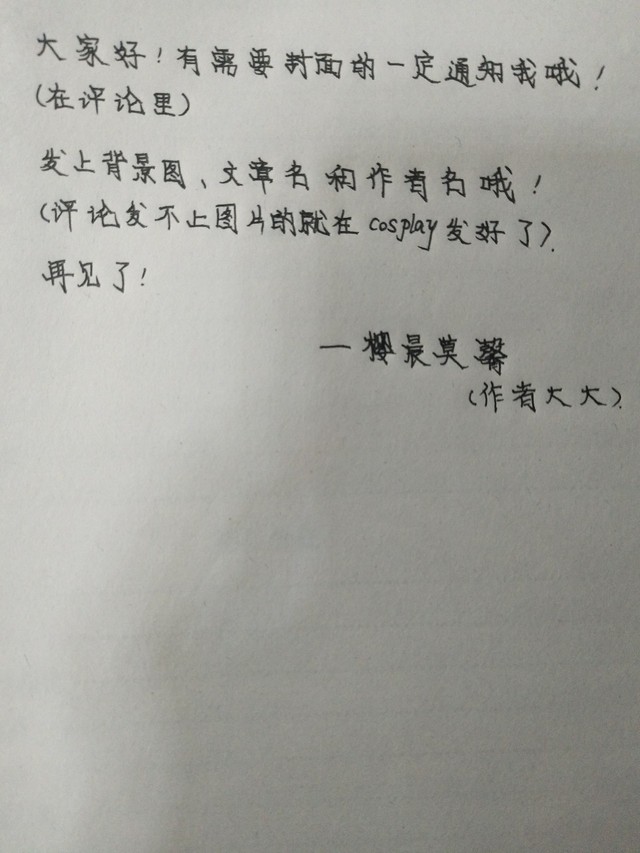 大家好！有需要封面的一定通知我哦！
（在评论里）
发上背景图、文章名和作者名哦！
（评论发不上图片的就在cosplay发好了）.
再见了！
一樱晨莫馨
（作者大大）.